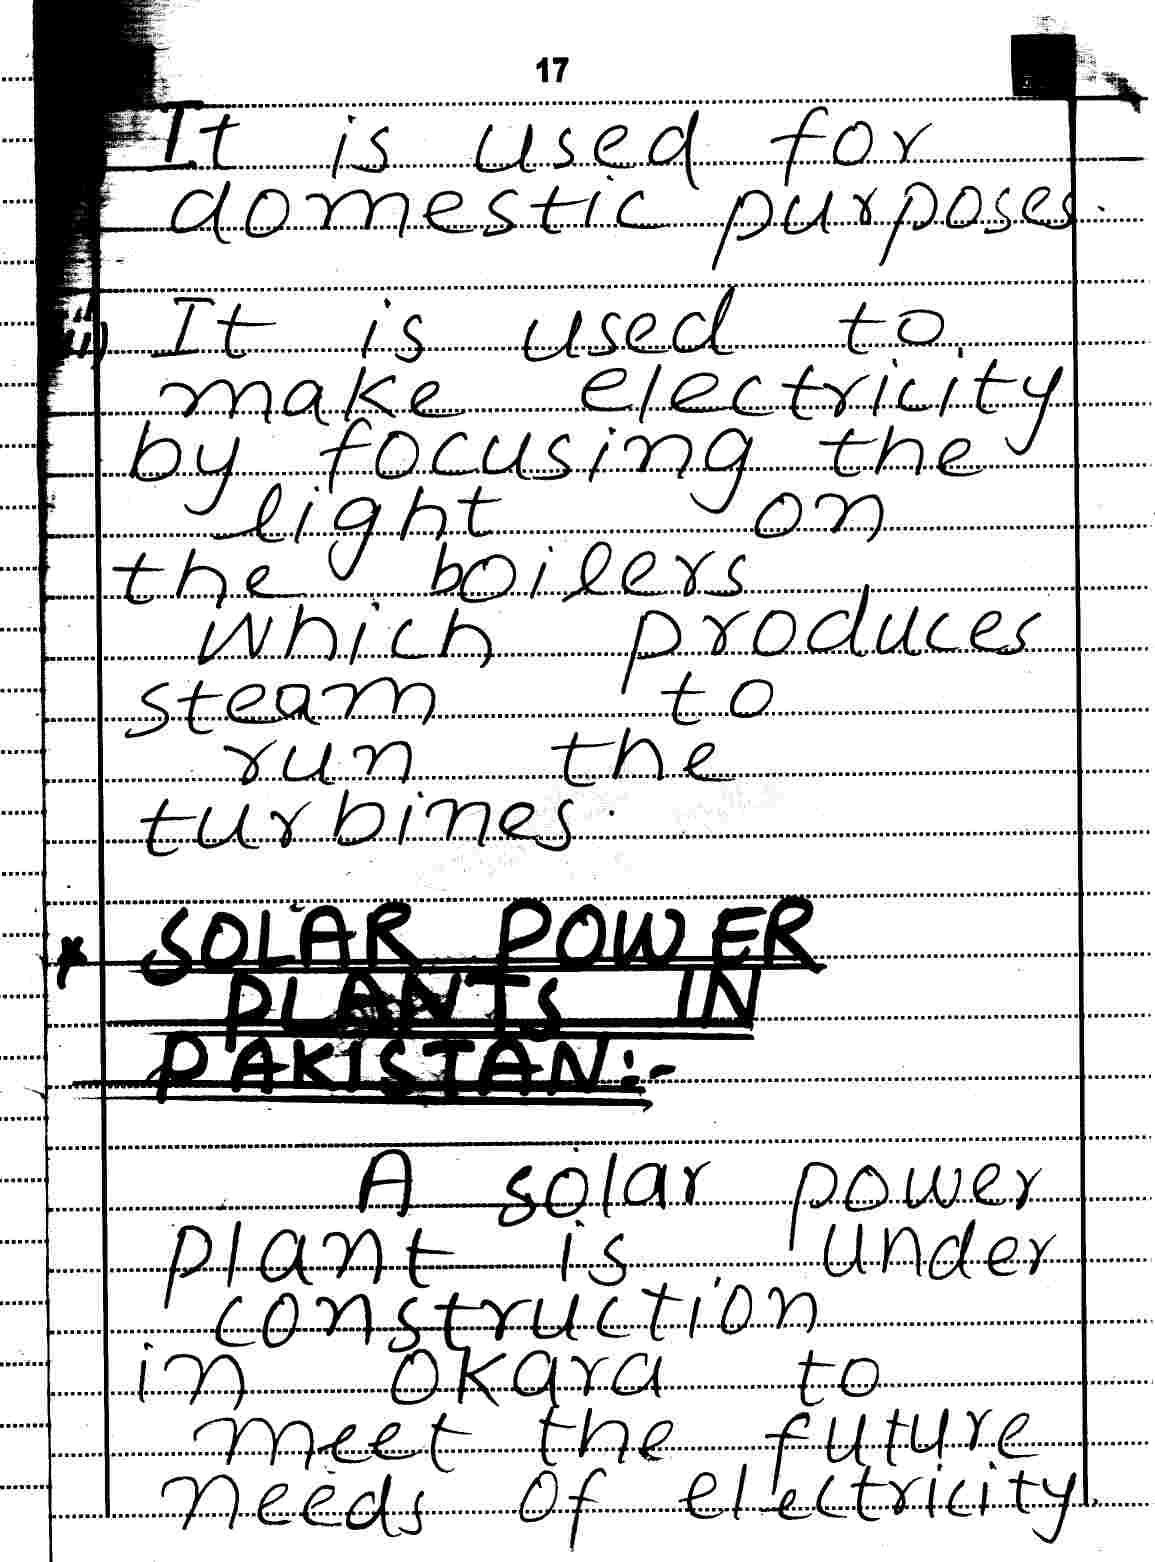 17
It is used for
domestic purposes.
ii) It is used to
make electricity
by focusing the
light on
the boilers
which produces
steam to
run the
turbines.
* SOLAR POWER
PLANTS IN
PAKISTAN:-
A solar power
plant is under
construction
in okara to
meet the future
needs of electricity.